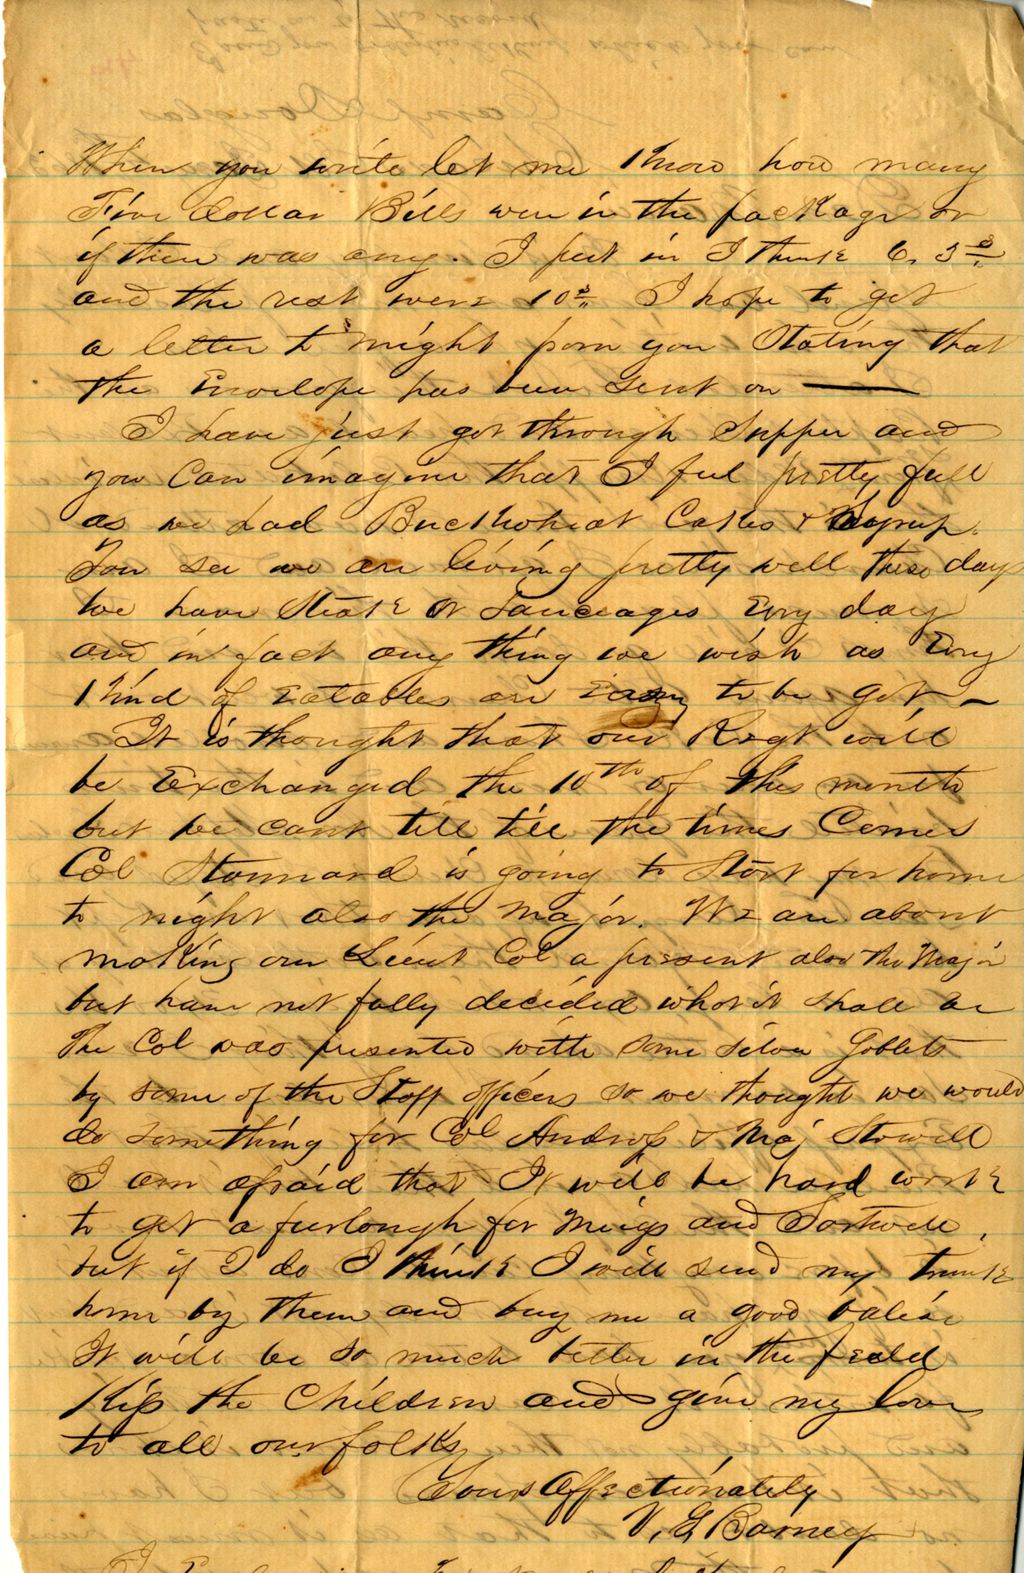 When you write let me know how many
Five dollar Bills were in the package or
if there was any. I put in I think 6. 5$
and the rest were 10$ I hope to get
a letter to night from you Stating that
the Envelope has been sent on —
I have just got through Supper and
you can imagine that I feel pretty full
as we had Buckwheat Cakes &
You see we are living pretty well these days
We have Steak or Sauceages Evry day
and in fact any thing we wish as Evry
kind of Eatables are Easy to be got, –
It is thought that our Regt will
be Exchanged the 10th of this month
but we cant till till the times Comes
Col Stannard is going to Start for home
to night also the Major. We are about
making our Lieut Col a present also the Major
but have not fully decided what it shall be
The Col was presented with some silver Goblets
by some of the Staff officers so we thought we would
do something for Col Andross & Maj Stowell
I am afraid that It will be hard work
to get a furlough for Meigs and Sartwell,
but if I do I think I will send my trunk
home by them and buy me a good valise
It will be so much better in the field
Kiss the Children and give my love
to all our folks
Yours Affectionately
V, G Barney